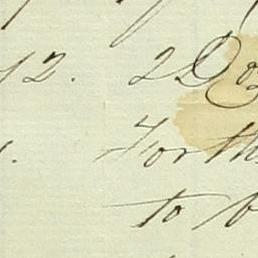 12. 2 Doz
1. For th
to b